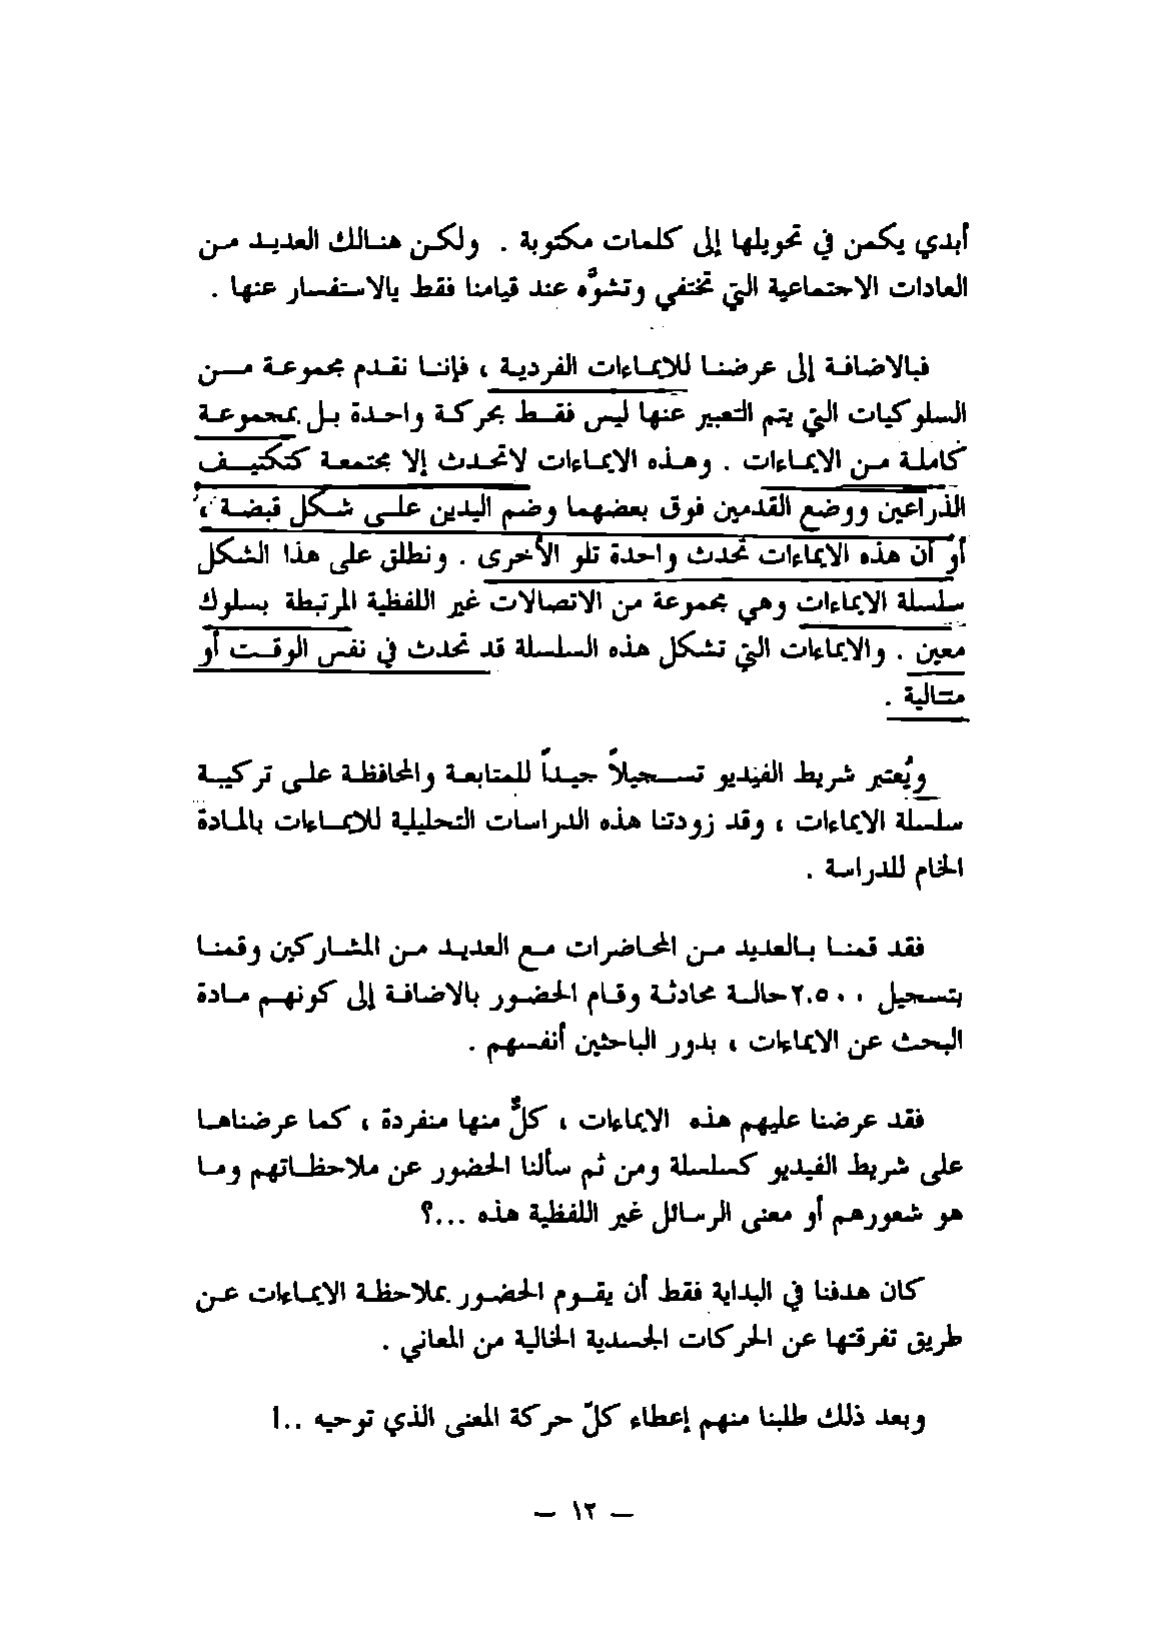 أبدي يكمن في تحويلها إلى كلمات مكتوبة . ولكن هنالك العديد من
العادات الاجتماعية التي تختفي وتشوَّه عند قيامنا فقط بالاستفسار عنها .
فبالاضافة إلى عرضنا للايماءات الفردية ، فإننا نقدم مجموعة من
السلوكيات التي يتم التعبير عنها ليس فقط بحركة واحدة بل بمجموعة
كاملة من الايماءات . وهذه الايماءات لاتحدث إلا مجتمعة كتكتيف
الذراعين ووضع القدمين فوق بعضهما وضم اليدين على شكل قبضة ،
أو أن هذه الايماءات تحدث واحدة تلو الأخرى . ونطلق على هذا الشكل
سلسلة الايماءات وهي مجموعة من الاتصالات غير اللفظية المرتبطة بسلوك
معين . والايماءات التي تشكل هذه السلسلة قد تحدث في نفس الوقت أو
متتالية .
ويُعتبر شريط الفيديو تسجيلاً جيداً للمتابعة والمحافظة على تركيبة
سلسلة الايماءات ، وقد زودتنا هذه الدراسات التحليلية للايماءات بالمادة
الخام للدراسة .
فقد قمنا بالعديد من المحاضرات مع العديد من المشاركين وقمنا
بتسجيل ٢،٥٠٠ حالة محادثة وقام الحضور بالاضافة إلى كونهم مادة
البحث عن الايماءات ، بدور الباحثين أنفسهم .
فقد عرضنا عليهم هذه الايماءات ، كلٌّ منها منفردة ، كما عرضناها
على شريط الفيديو كسلسلة ومن ثم سألنا الحضور عن ملاحظاتهم وما
هو شعورهم أو معنى الرسائل غير اللفظية هذه ...؟
كان هدفنا في البداية فقط أن يقوم الحضور بملاحظة الايماءات عن
طريق تفرقتها عن الحركات الجسدية الخالية من المعاني .
وبعد ذلك طلبنا منهم إعطاء كلّ حركة المعنى الذي توحيه ..!
— ١٢ —